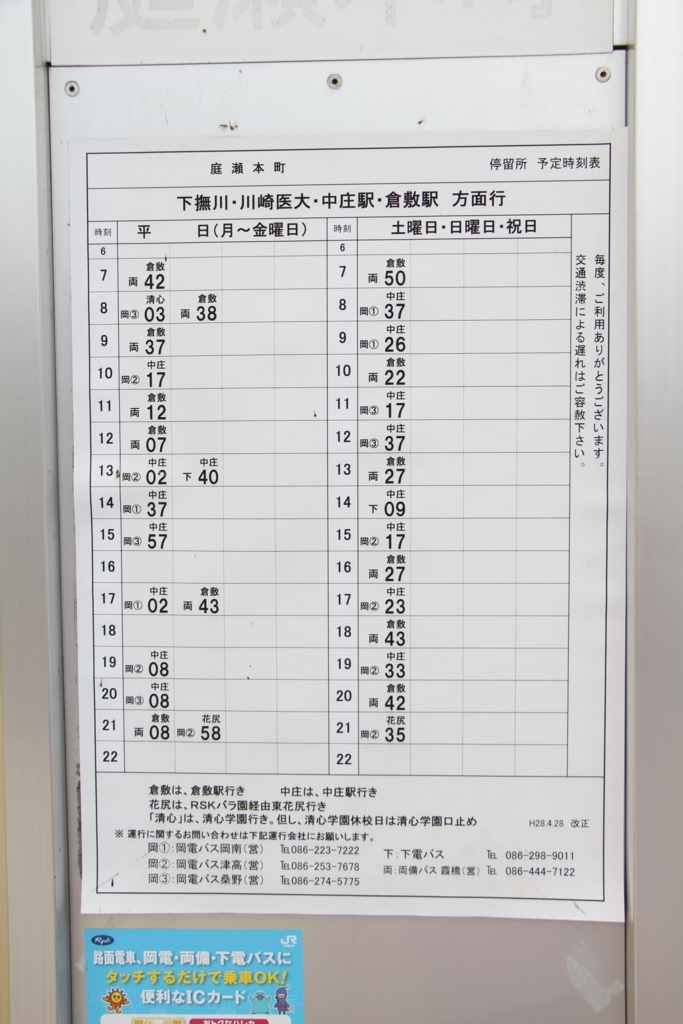 庭瀬本町
庭瀬本町 停留所 予定時刻表
下撫川・川崎医大・中庄駅・倉敷駅 方面行
時刻 平 日(月～金曜日) 時刻 土曜日・日曜日・祝日
6 6
7 倉敷 両 42 7 倉敷 両 50
8 清心 岡③ 03 倉敷 両 38 8 中庄 岡① 37
9 倉敷 両 37 9 中庄 岡① 26
10 中庄 岡② 17 10 倉敷 両 22
11 倉敷 両 12 11 中庄 岡③ 17
12 倉敷 両 07 12 中庄 岡③ 37
13 中庄 岡② 02 中庄 下 40 13 倉敷 両 27
14 中庄 岡① 37 14 中庄 下 09
15 中庄 岡③ 57 15 中庄 岡② 17
16 16 倉敷 両 27
17 中庄 岡① 02 倉敷 両 43 17 中庄 岡② 23
18 18 倉敷 両 43
19 中庄 岡② 08 19 中庄 岡② 33
20 中庄 岡③ 08 20 倉敷 両 42
21 倉敷 両 08 花尻 岡② 58 21 花尻 岡② 35
22 22
毎度、ご利用ありがとうございます。
交通渋滞による遅れはご容赦下さい。
倉敷は、倉敷駅行き 中庄は、中庄駅行き
花尻は、RSKバラ園経由東花尻行き
「清心」は、清心学園行き。但し、清心学園休校日は清心学園口止め H28.4.28 改正
※ 運行に関するお問い合わせは下記運行会社にお願いします。
岡①:岡電バス岡南(営) ℡086-223-7222 下:下電バス ℡ 086-298-9011
岡②:岡電バス津高(営) ℡086-253-7678 両:両備バス 霞橋(営) ℡ 086-444-7122
岡③:岡電バス桑野(営) ℡086-274-5775
JR
路面電車、岡電・両備・下電バスに
タッチするだけで乗車OK!
便利なICカード